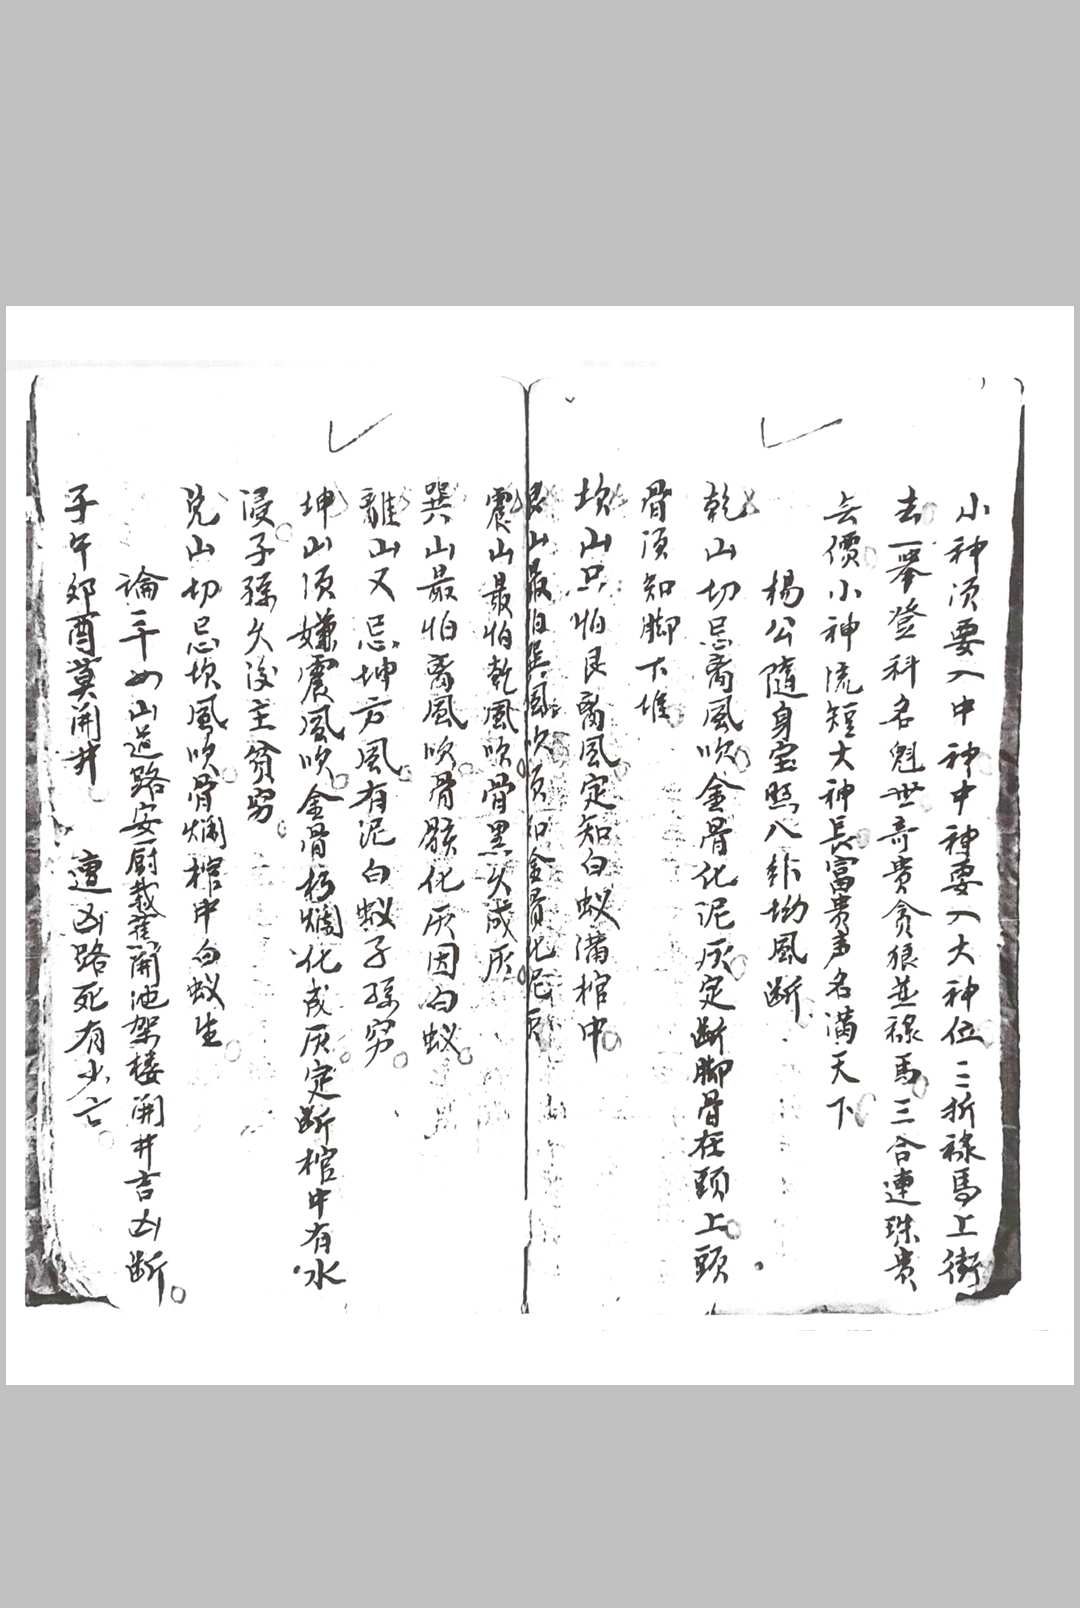 小神须要入中神中神要入大神位二折禄馬上街
去一举登科名魁世奇贵贪狼並禄馬三合連珠贵
無價小神流短大神長富贵声名满天下
楊公隨身宝照八卦坳風断
乾山切忌离風吹金骨化泥灰定断脚骨在頭上頭
骨须知脚下堆
坎山只怕艮离風定知白蚁满棺中
艮山最怕巽風吹须知金骨化泥灰
震山最怕乾風吹骨黑久成灰
巽山最怕离風吹骨骸化灰因白蚁
離山又忌坤方風有泥白蚁子孫穷
坤山须嫌震風吹金骨朽爛化成灰定断棺中有水
浸子孫久後主贫穷
兑山切忌坎風吹骨爛棺中白蚁生
論二十四山道路安厨栽蕉開池架楼開井吉凶断
子午卯酉莫開井 遭凶路死有少亡